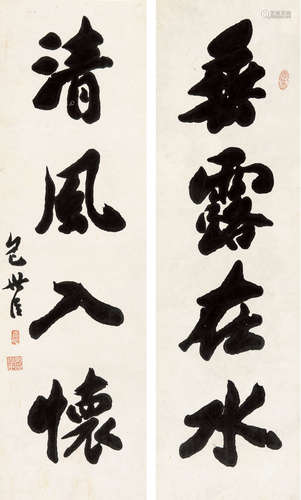 垂露在水
清風入懷
包世臣